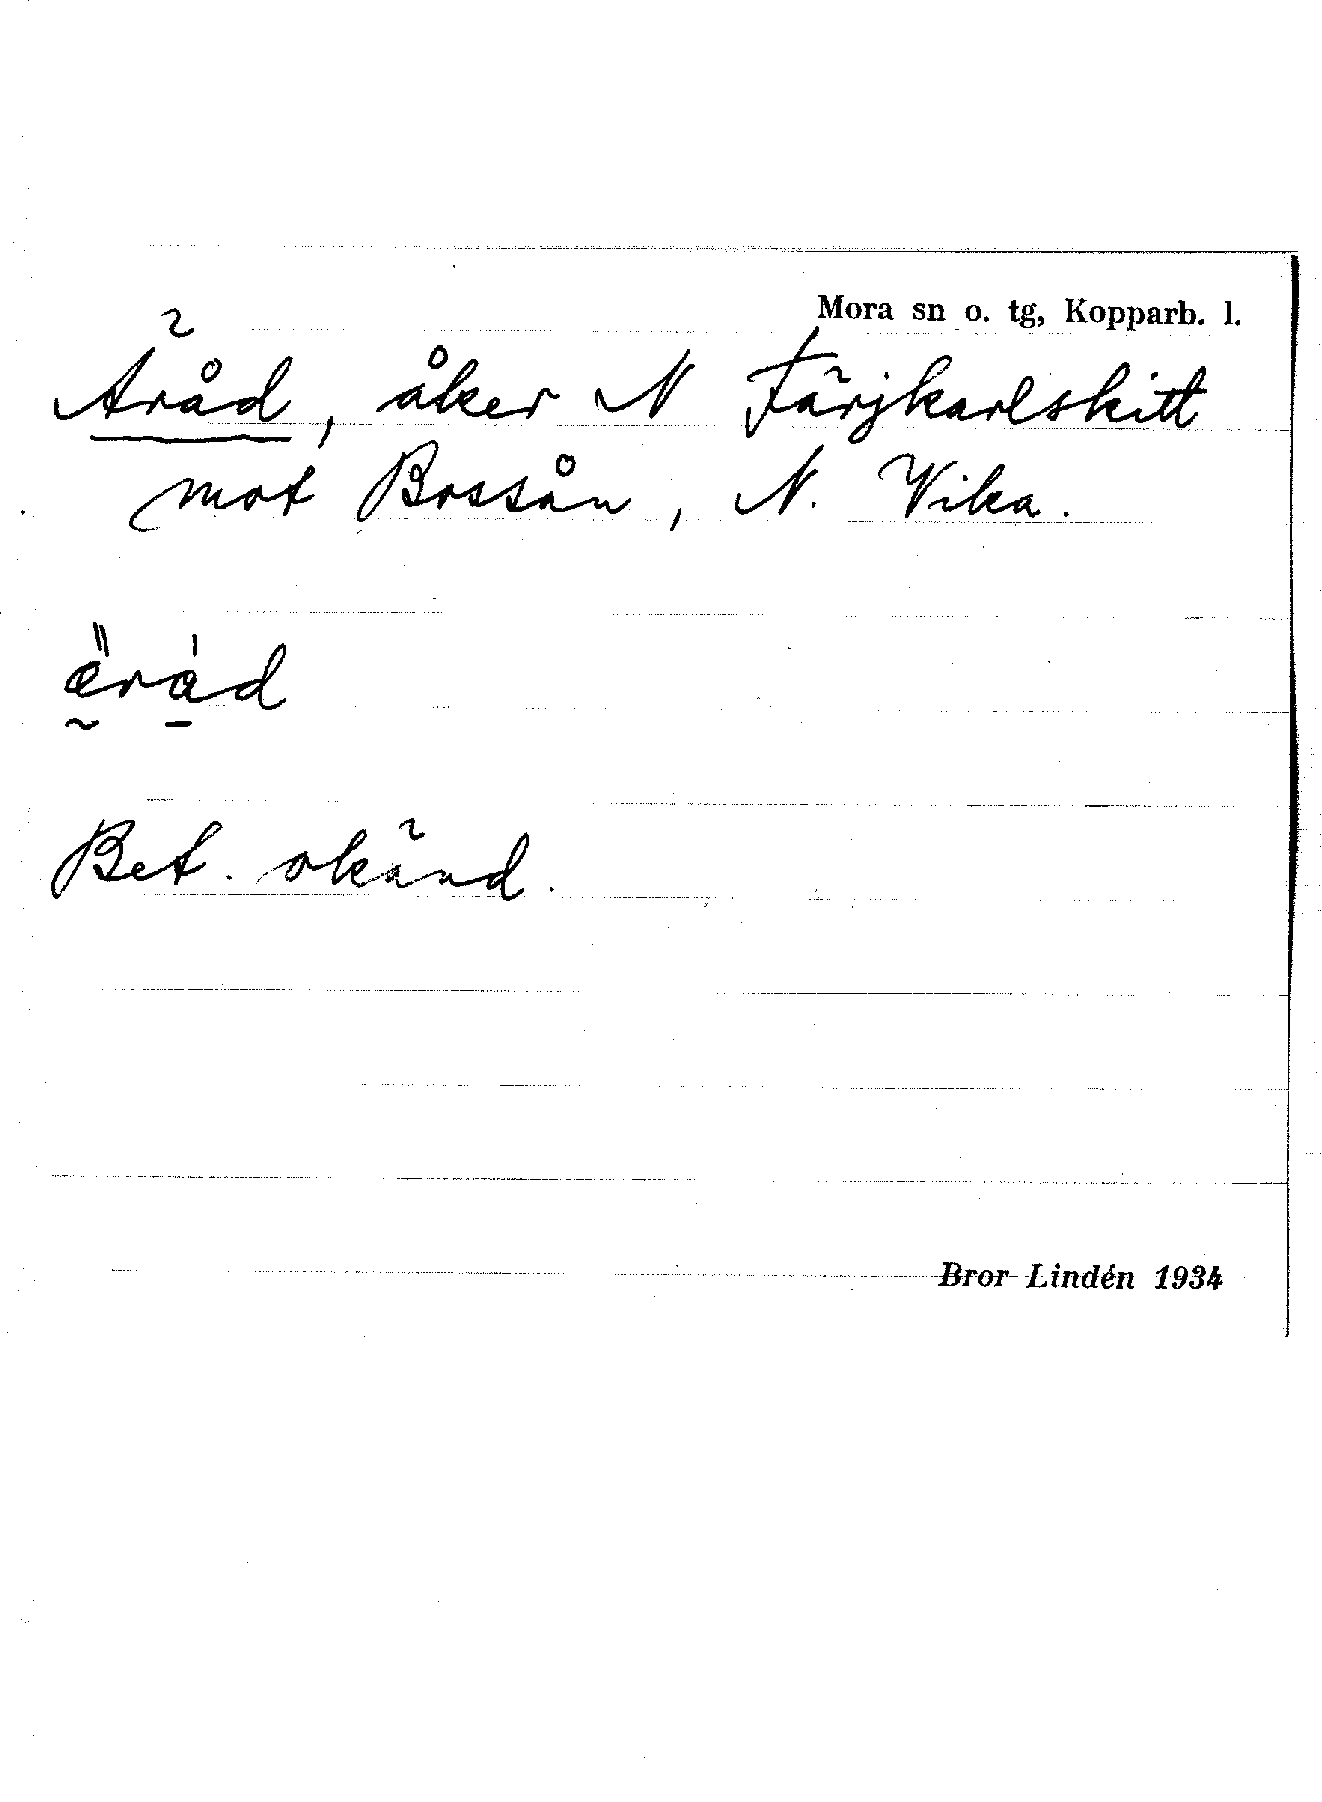 Mora sn o. tg, Kopparb. l.
Äråd, åker N Färjkarlskitt
mot Bossån, N. Vika.
äråd
Bet. okänd.
Bror Lindén 1934